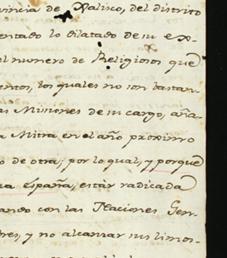 vincia de Xalisco, del distrito
entado lo dilatado de su ex-
l numero de Religiosos que
entos, los quales no son bastan-
as Misiones de mi cargo, aña-
a Mitra en el año proximo
o de otra; por lo qual, y porque
va España, estàr radicada
ando con las Naciones Gen-
res, y no alcanzar sus limos-